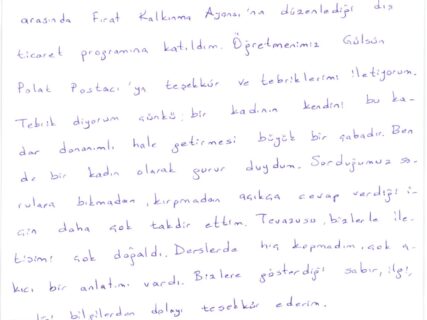 arasında Fırat Kalkınma Ajansı'nın düzenlediği dış
ticaret programına katıldım. Öğretmenimiz Gülsün
Polat Postacı'ya teşekkür ve tebriklerimi iletiyorum.
Tebrik diyorum çünkü, bir kadının kendini bu ka-
dar donanımlı hale getirmesi büyük bir çabadır. Ben
de bir kadın olarak gurur duydum. Sorduğumuz so-
rulara bıkmadan, kırpmadan açıkça cevap verdiği i-
çin daha çok takdir ettim. Tevazusu, bizlerle ile-
tişimi çok doğaldı. Derslerde hiç kopmadım, çok a-
kıcı bir anlatımı vardı. Bizlere gösterdiği sabır, ilgi,
bilgilerden dolayı teşekkür ederim.